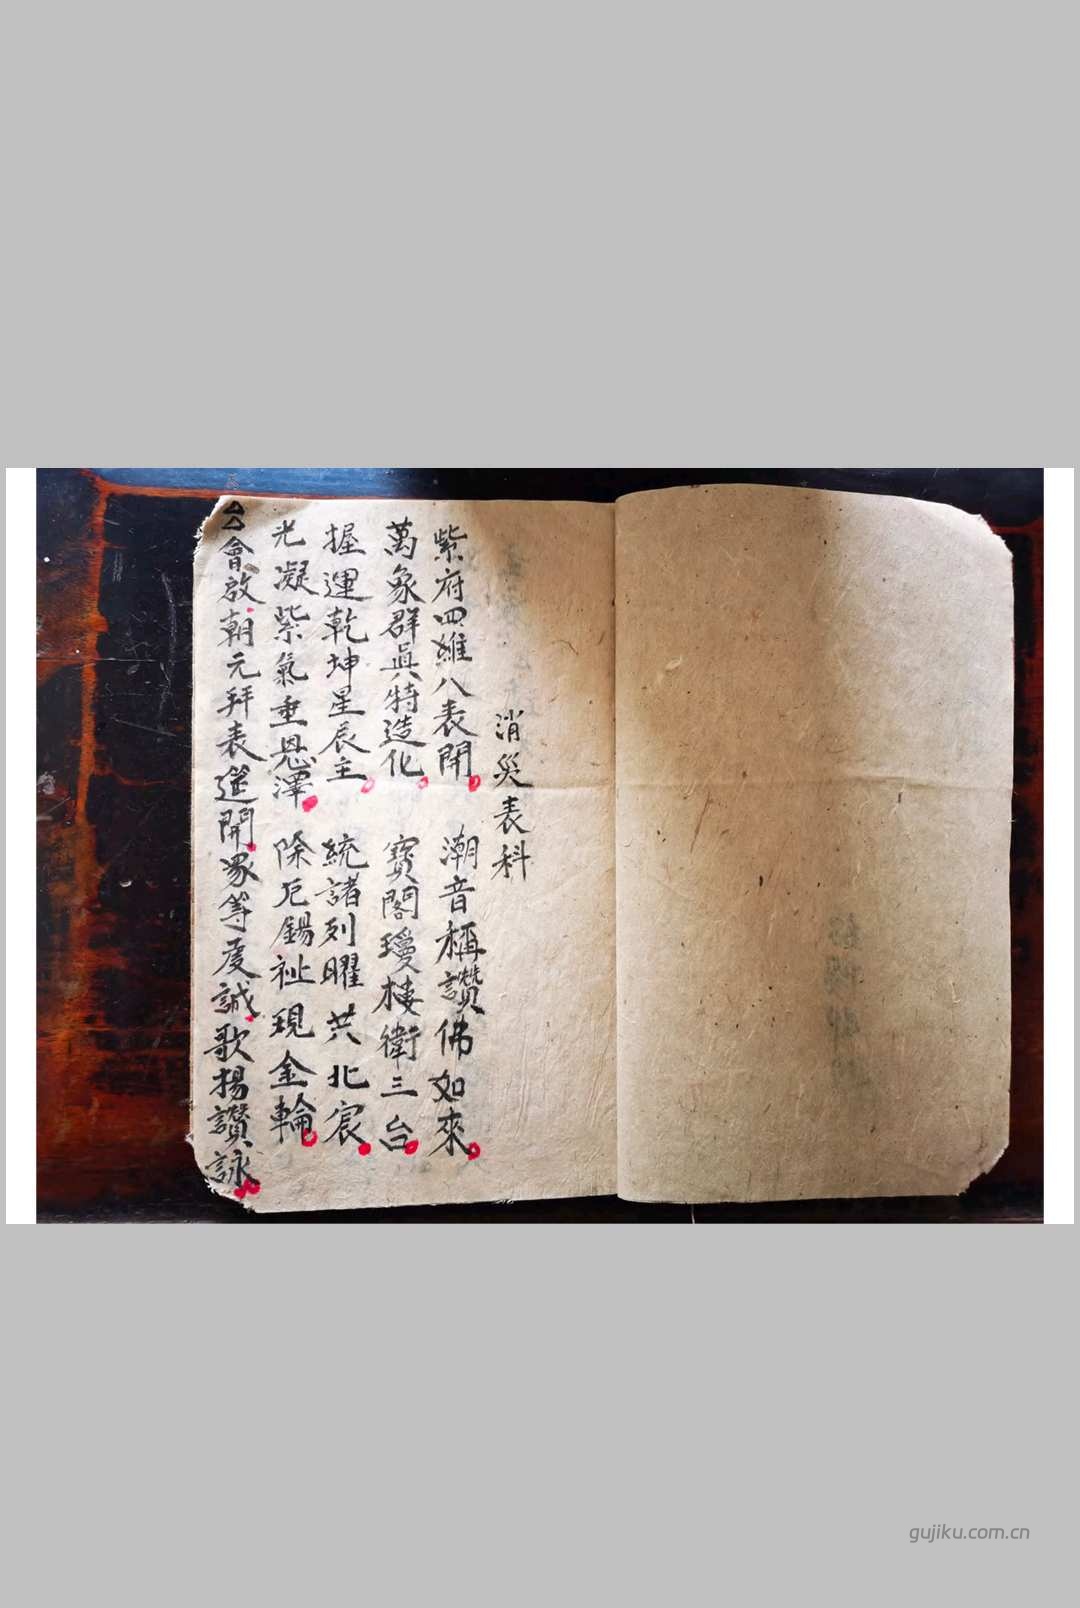 消災表科
紫府四維八表開 潮音稱讚佛如來
萬象群真特造化 寶閣瓊樓衛三台
握運乾坤星辰主 統諸列曜共北宸
光凝紫氣垂恩澤 除厄錫祉現金輪
會啟朝元拜表筵開眾等虔誠歌揚讚詠
gujiku.com.cn